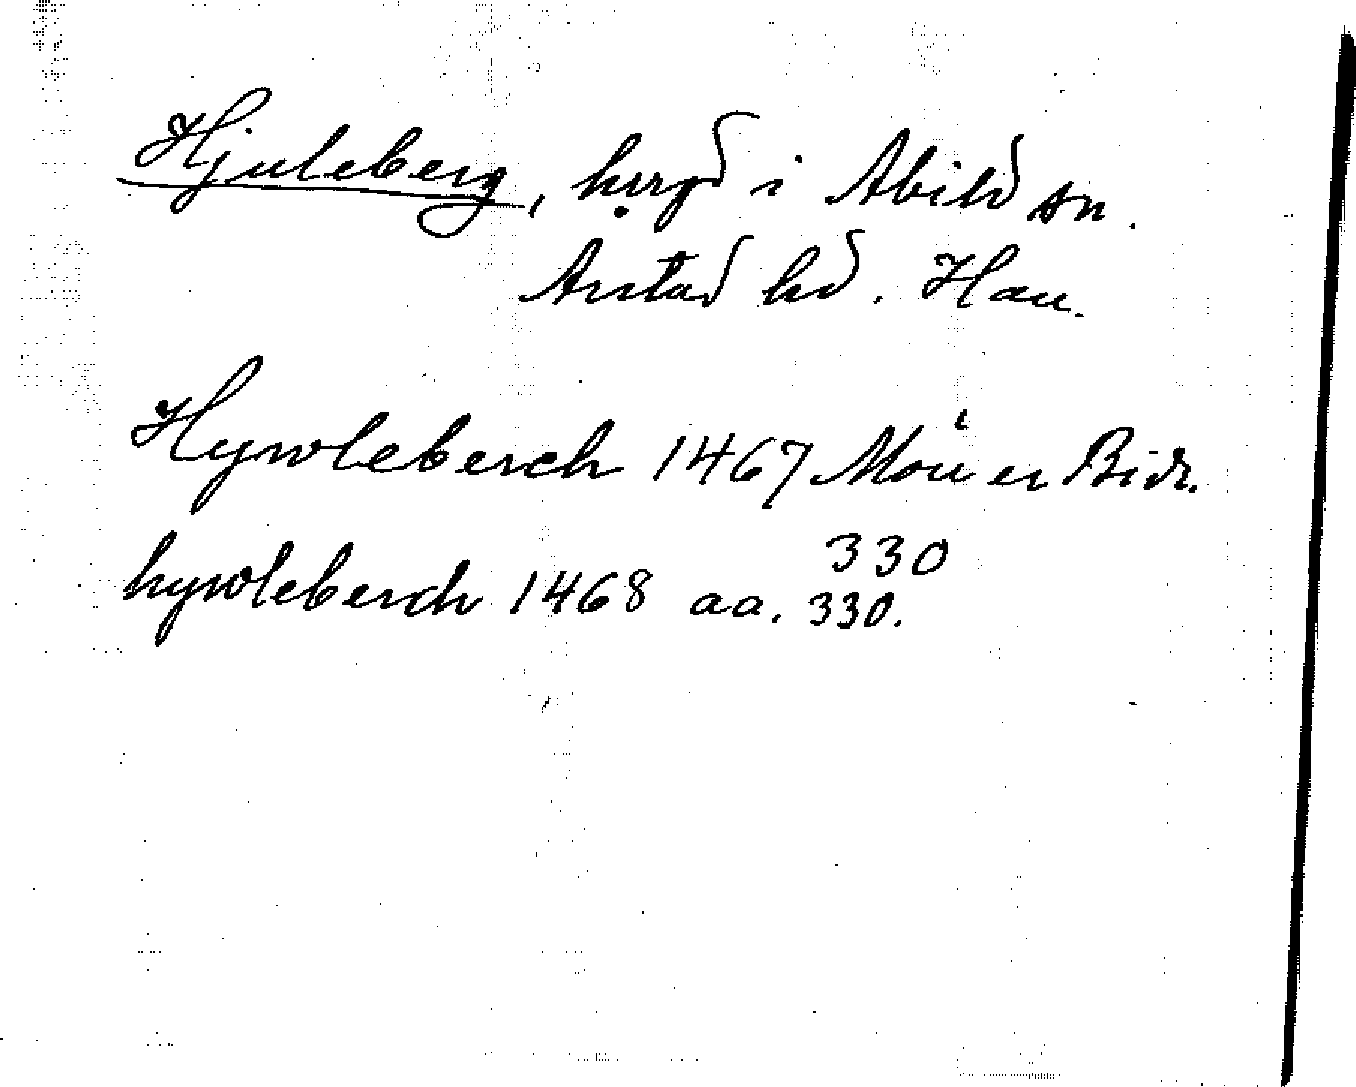 Hjuleberg, hrgd i Abild sn.
Årstad hd. Hall.
Hywleberch 1467 Mollerer Bidr.
330
hywleberch 1468 aa. 330.